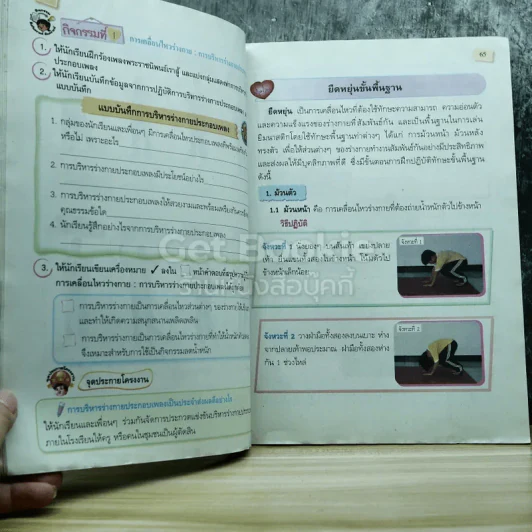 กิจกรรมที่ 1
การเคลื่อนไหวร่างกาย : การบริหารร่างกาย
1. ให้นักเรียนฝึกร้องเพลงพระราชนิพนธ์เราสู้ และแบ่งกลุ่มแสดงท่าการบริหาร
ประกอบเพลง
2. ให้นักเรียนบันทึกข้อมูลจากการปฏิบัติการบริหารร่างกายประกอบเพลง
แบบบันทึก
แบบบันทึกการบริหารร่างกายประกอบเพลง
1. กลุ่มของนักเรียนและเพื่อนๆ มีการเคลื่อนไหวร่างกายประกอบเพลงที่พร้อมเพรียงกัน
หรือไม่ เพราะอะไร
2. การบริหารร่างกายประกอบเพลงมีประโยชน์อย่างไร
3. การบริหารร่างกายประกอบเพลงให้สวยงามและพร้อมเพรียงกันควร
คุณธรรมข้อใด
4. นักเรียนรู้สึกอย่างไรจากการบริหารร่างกายประกอบเพลง
3. ให้นักเรียนเขียนเครื่องหมาย ✓ ลงใน หน้าคำตอบที่
การเคลื่อนไหวร่างกาย : การบริหารร่างกายประกอบเพลง
การบริหารร่างกายเป็นการเคลื่อนไหวส่วนต่างๆ ของร่างกาย
และทำให้เกิดความสนุกสนานเพลิดเพลิน
การบริหารร่างกายเป็นการเคลื่อนไหวร่างกายที่ทำให้น้ำหนักตัว
จึงเหมาะสำหรับการใช้เป็นกิจกรรมลดน้ำหนัก
จุดประกายโครงงาน
การบริหารร่างกายประกอบเพลงเป็นประจำส่งผลดีอย่างไร
ให้นักเรียนและเพื่อนๆ ร่วมกันจัดการประกวดแข่งขันบริหารร่างกายประกอบ
ภายในโรงเรียนให้ครู หรือคนในชุมชนเป็นผู้ตัดสิน
65
ยืดหยุ่นขั้นพื้นฐาน
ยืดหยุ่น เป็นการเคลื่อนไหวที่ต้องใช้ทักษะความสามารถ ความอ่อนตัว
และความแข็งแรงของร่างกายที่สัมพันธ์กัน และเป็นพื้นฐานในการเล่น
ยิมนาสติกโดยใช้ทักษะพื้นฐานท่าต่างๆ ได้แก่ การม้วนหน้า ม้วนหลัง
ทรงตัว เพื่อให้ส่วนต่างๆ ของร่างกายทำงานสัมพันธ์กันอย่างมีประสิทธิภาพ
และส่งผลให้มีบุคลิกภาพที่ดี ซึ่งมีขั้นตอนการฝึกปฏิบัติทักษะขั้นพื้นฐาน
ดังนี้
1. ม้วนตัว
1.1 ม้วนหน้า คือ การเคลื่อนไหวร่างกายที่ต้องถ่ายน้ำหนักตัวไปข้างหน้า
วิธีปฏิบัติ
จังหวะที่ 1 นั่งยองๆ บนส้นเท้า เขย่งปลาย
เท้า ยื่นแขนทั้งสองไปข้างหน้า โน้มตัวไป
ข้างหน้าเล็กน้อย
จังหวะที่ 1
จังหวะที่ 2 วางฝ่ามือทั้งสองลงบนเบาะ ห่าง
จากปลายเท้าพอประมาณ ฝ่ามือทั้งสองห่าง
กัน 1 ช่วงไหล่
จังหวะที่ 2
Get Booki
ร้านหนังสือบุ๊คกี้